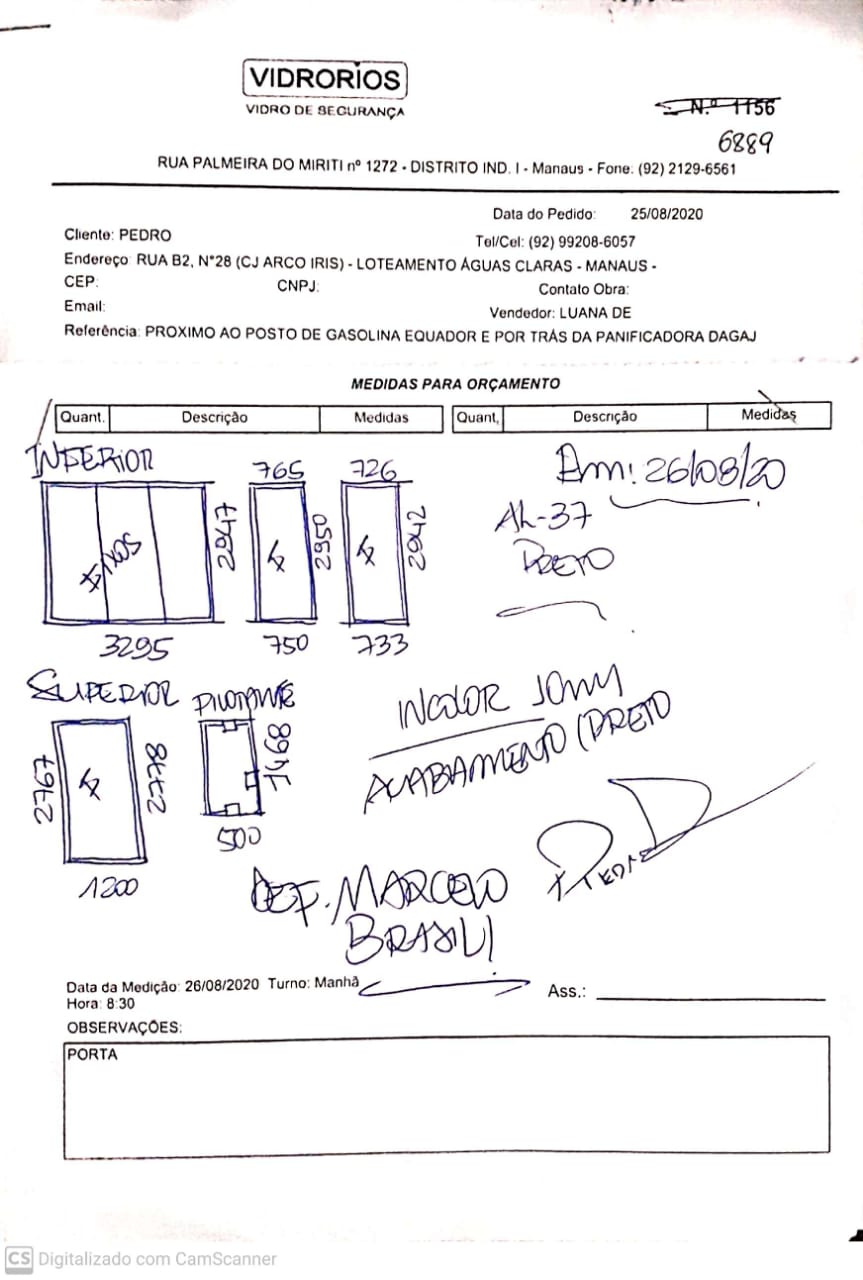 VIDRORIOS
VIDRO DE SEGURANÇA
N.º 1156
6889
RUA PALMEIRA DO MIRITI nº 1272 - DISTRITO IND. I - Manaus - Fone: (92) 2129-6561
Data do Pedido: 25/08/2020
Cliente: PEDRO
Tel/Cel: (92) 99208-6057
Endereço: RUA B2, N°28 (CJ ARCO IRIS) - LOTEAMENTO ÁGUAS CLARAS - MANAUS -
CEP: CNPJ: Contato Obra:
Email: Vendedor: LUANA DE
Referência: PROXIMO AO POSTO DE GASOLINA EQUADOR E POR TRÁS DA PANIFICADORA DAGAJ
MEDIDAS PARA ORÇAMENTO
Quant. Descrição Medidas Quant. Descrição Medidas
INFERIOR
765 726
Em: 26/08/20
AL-37
PRETO
FIXOS
2947 2950 2942
3295 750 733
SUPERIOR PIVOTANTE
INCOLOR 10mm
ACABAMENTO (PRETO
2767 2778 1468
500
1200
PEDRO
REF. MARCELO
BRASIL
Data da Medição: 26/08/2020 Turno: Manhã
Ass.:
Hora: 8:30
OBSERVAÇÕES:
PORTA
CS Digitalizado com CamScanner